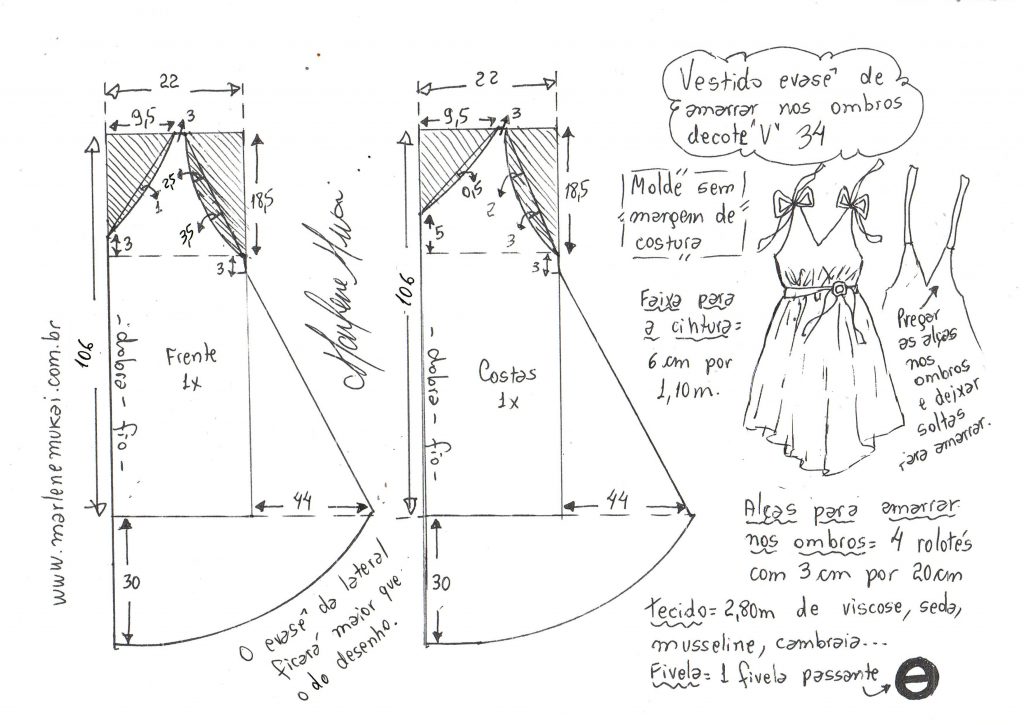 Vestido evasê de
amarrar nos ombros
decote "V" 34
Molde sem
margem de
costura
Faixa para
a cintura=
6 cm por
1,10m.
Pregar
as alças
nos
ombros
e deixar
soltas
para amarrar.
Alças para amarrar
nos ombros= 4 rolotés
com 3 cm por 20 cm
Tecido= 2,80m de viscose, seda,
musseline, cambraia...
Fivela= 1 fivela passante
22
9,5
3
1
2,5
3,5
18,5
3
3
106
- dobra - fio -
Frente
1x
44
30
O evasê da lateral
ficará maior que
o do desenho.
Marlene Mukai
22
9,5
3
0,5
2
3
18,5
5
3
106
- dobra - fio -
Costas
1x
44
30
www.marlenemukai.com.br